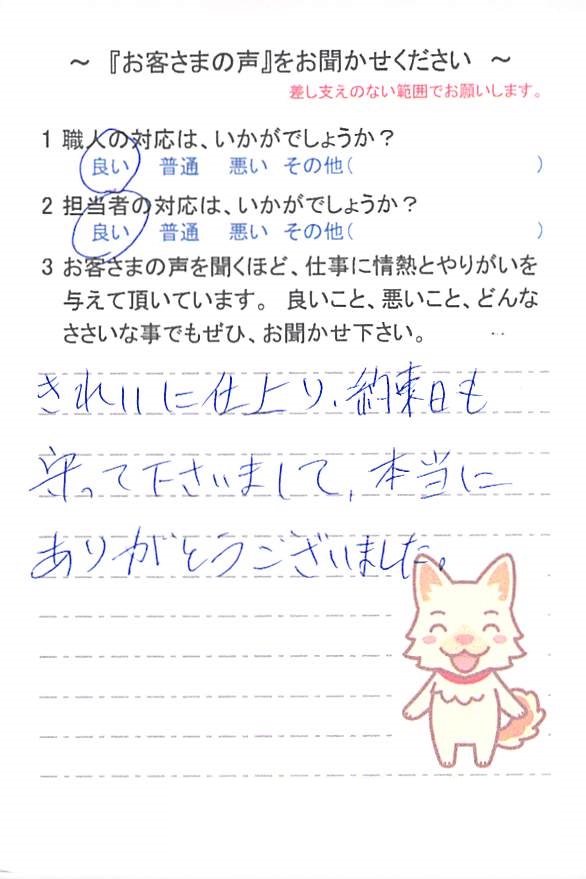 ～ 『お客さまの声』をお聞かせください ～
差し支えのない範囲でお願いします。
1 職人の対応は、いかがでしょうか？
良い 普通 悪い その他( )
2 担当者の対応は、いかがでしょうか？
良い 普通 悪い その他( )
3 お客さまの声を聞くほど、仕事に情熱とやりがいを
与えて頂いています。 良いこと、悪いこと、どんな
ささいな事でもぜひ、お聞かせ下さい。
きれいに仕上り、約束日も
守って下さいまして、本当に
ありがとうございました。